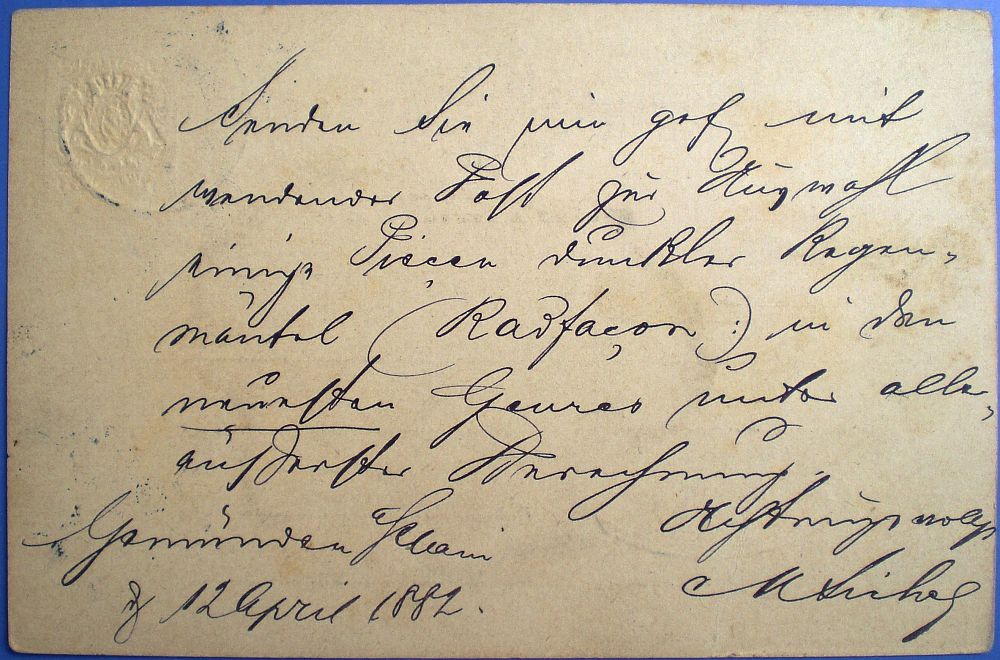 Senden Sie mir gefl mit
wendender Post zur Auswahl
einige Piecen dunkler Regen-
mäntel (Radfaçon:) in den
neuesten Genres unter aller-
äußerster Berechnung.
Achtungsvollst
Gemünden a/Main
d 12 April 1882.